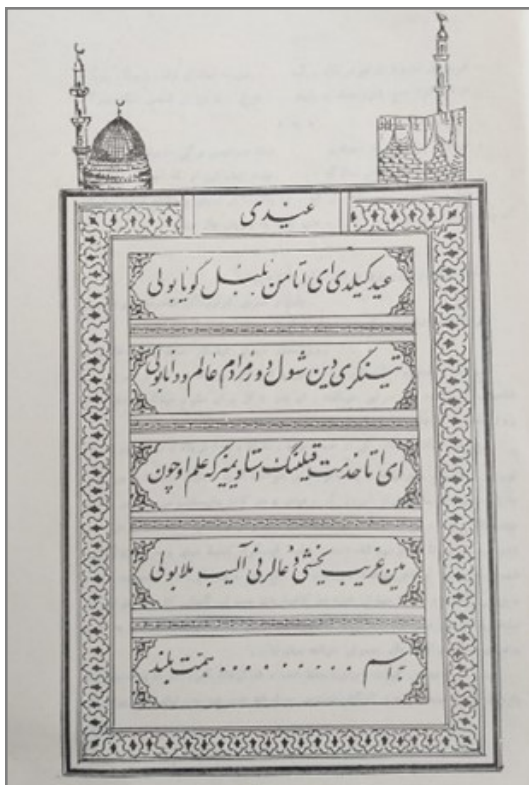 عیدی
عید کیلدی ای اتا من بلبل کویا بولی
تینکری دین شول دور مرادم عالم و دانا بولی
ای اتا خدمت قیلنک استادیمیز که علم اوچون
مین غریب یخشی دعالرنی آلیب ملا بولی
بر اسم . . . . . . . . . همت بلند